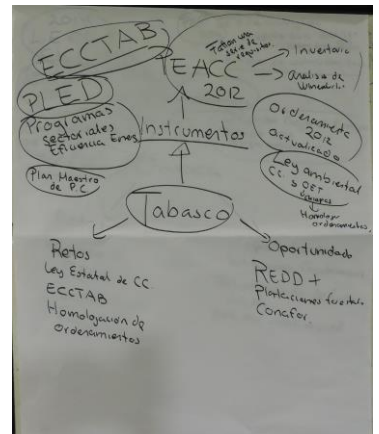 ECCTAB
PLED
Programas
sectoriales
Eficiencia Energ
Plan Maestro
de PC
EACC
2012
serie de
requisitos
→ Inventario
→ Analisis de
Instrumentos
Ordenamiento
2012
actualizado
Ley ambiental
CC y OET
Homologar
ordenamientos
Tabasco
Retos
Ley Estatal de CC
ECCTAB
Homologación de
Ordenamientos
Oportunidad
REDD+
Plantaciones forestales
Conafor